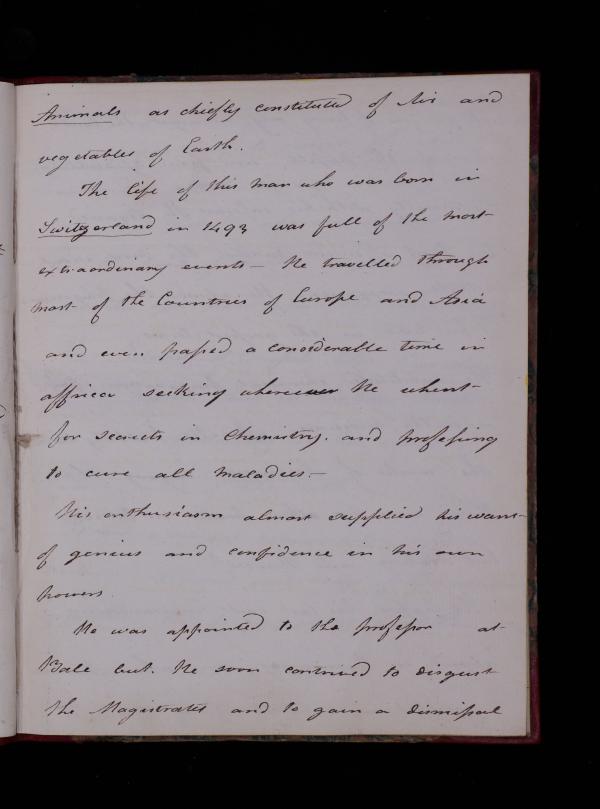 Animals as chiefly constituted of Air and
vegetables of Earth.
The life of this man who was born in
Switzerland in 1493 was full of the most
extraordinary events - He travelled through
most of the Countries of Europe and Asia
and even passed a considerable time in
affrica seeking wherever he whent
for secrets in Chemistry. and professing
to cure all maladies.-
his enthusiasm almost supplied his want
of genius and confidence in his own
powers.
He was appointed to the professor at
Bale but. He soon contrived to disgust
the Magistrates and to gain a dismissal